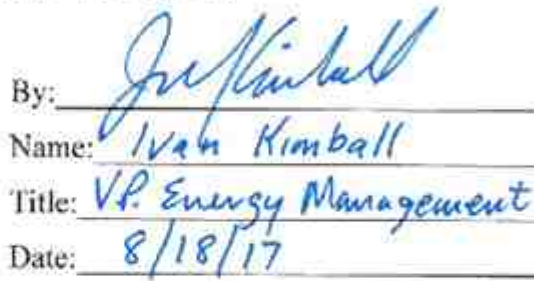 By:
Name: Ivan Kimball
Title: VP. Energy Management
Date: 8/18/17